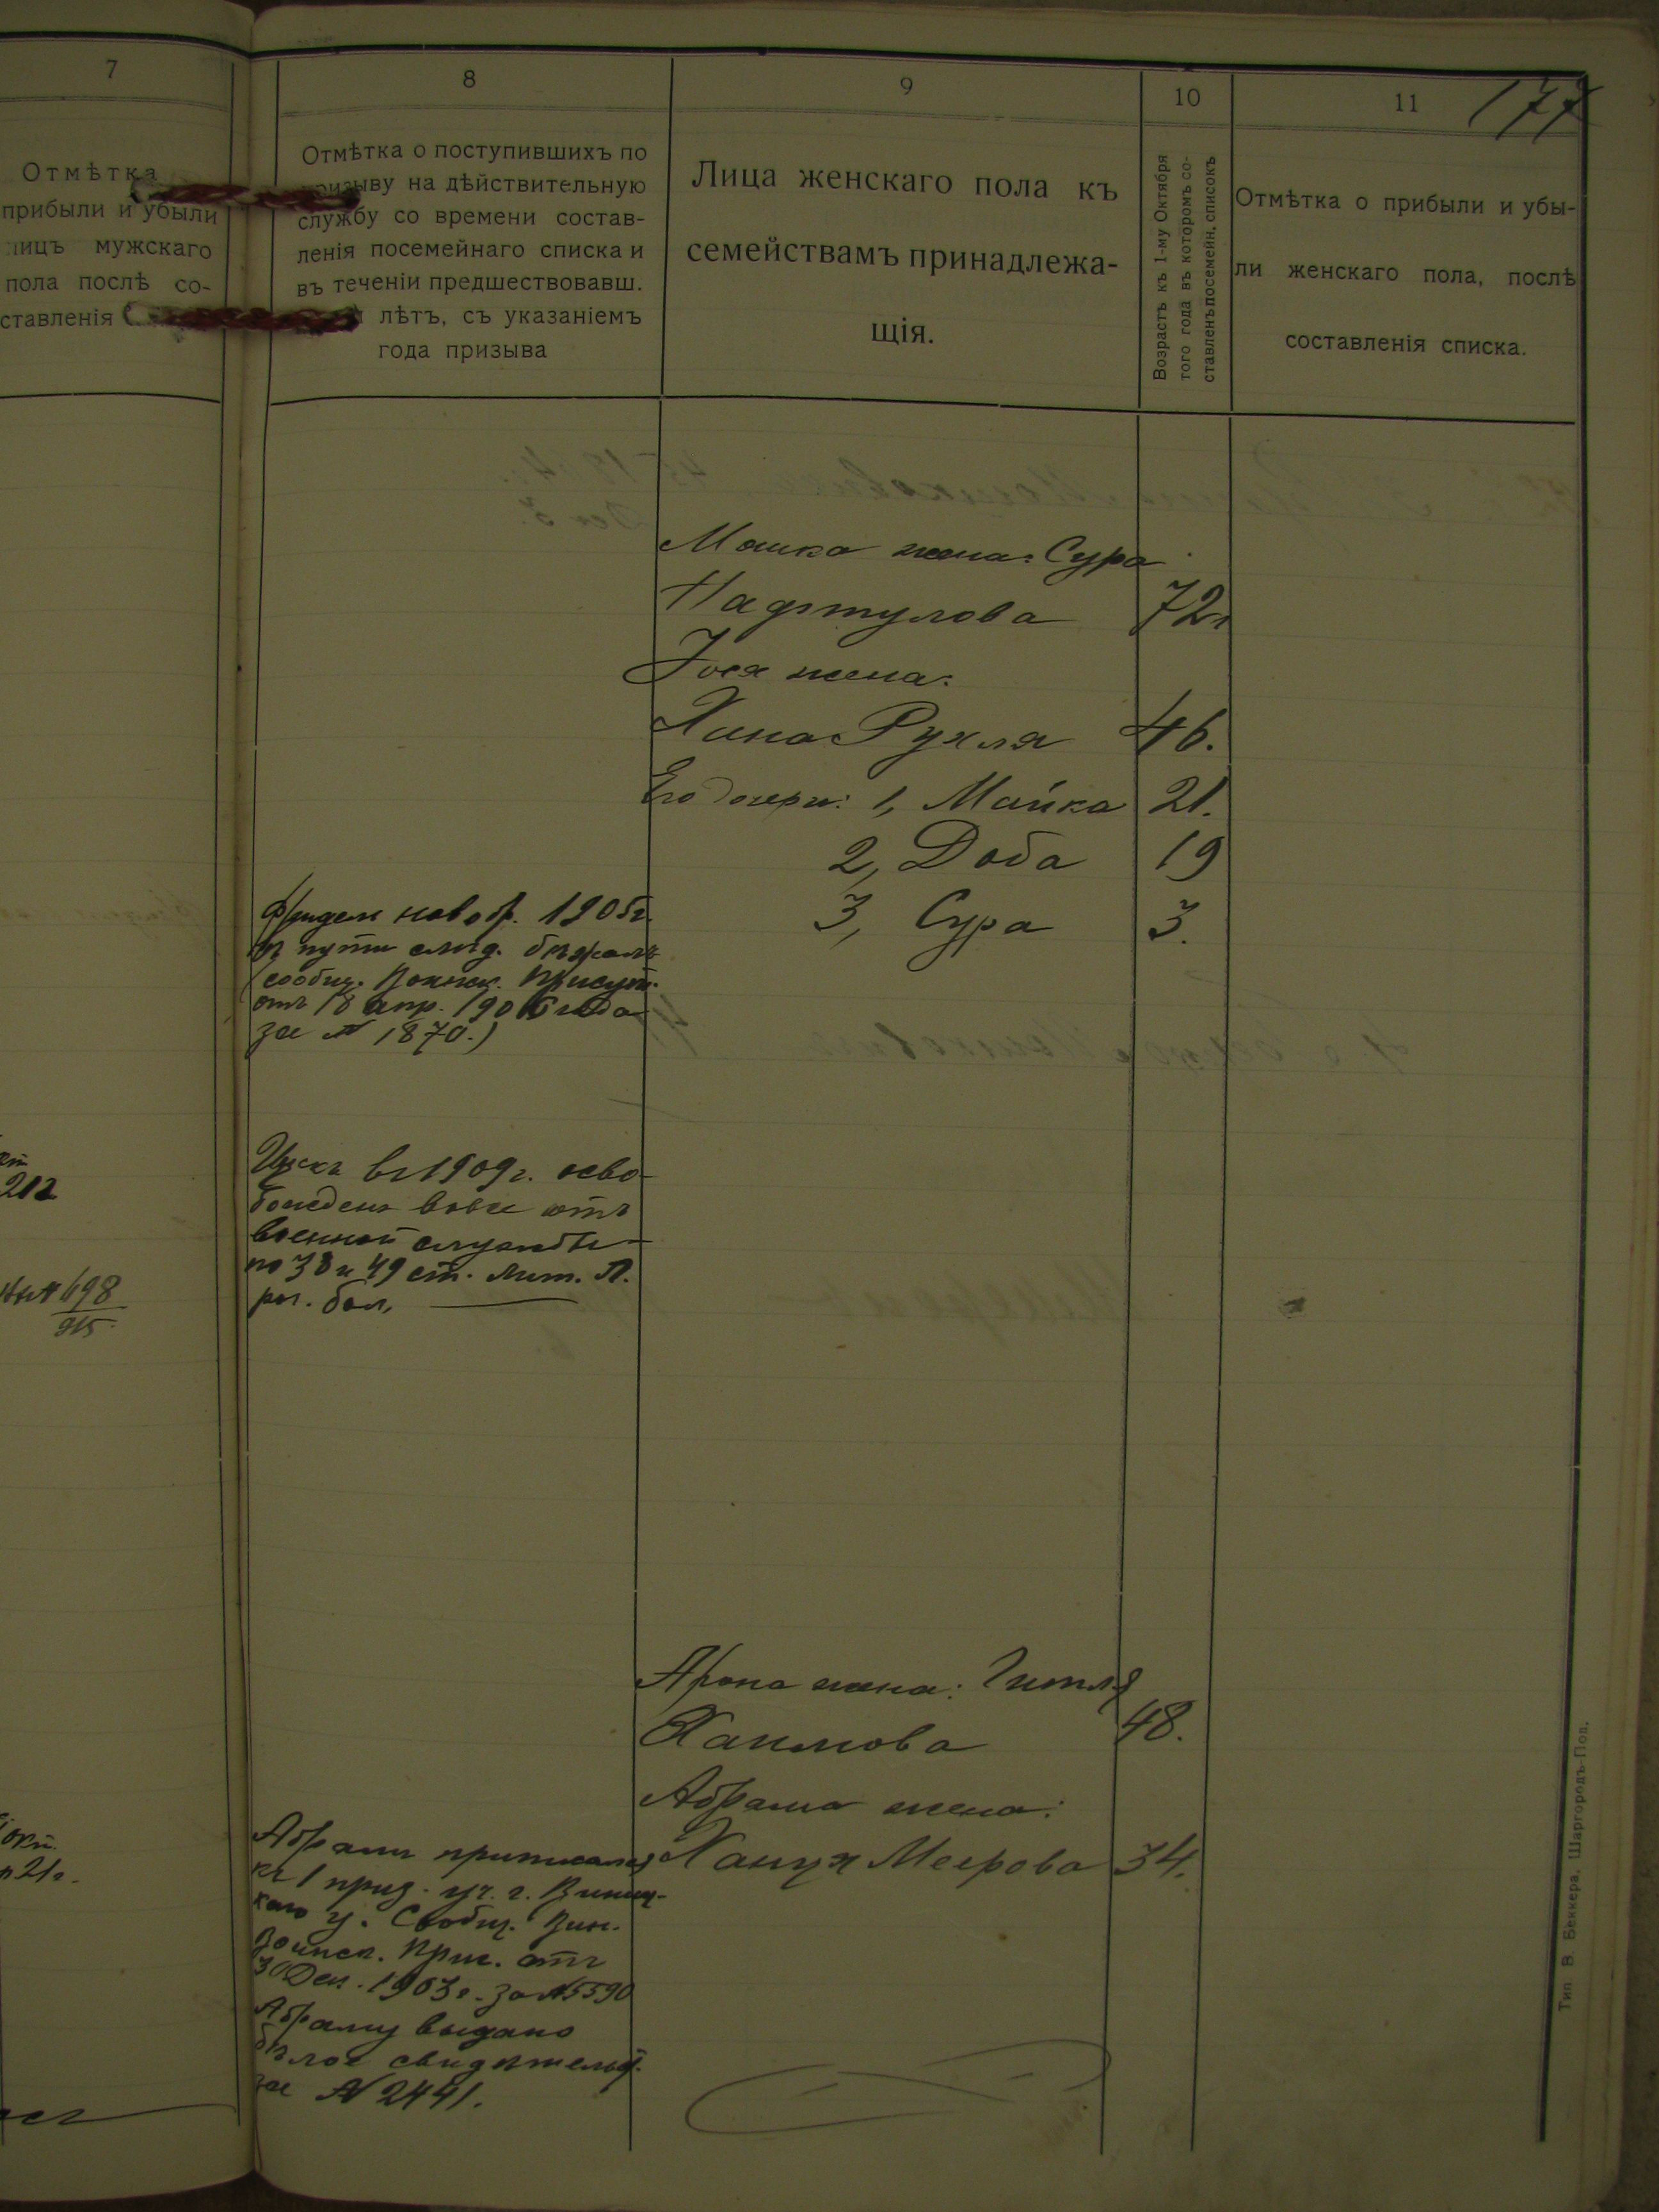 7
Отмѣтка
прибыли и убыли
лицъ мужскаго
пола послѣ со-
ставленія
212
698
915
21г.
8
Отмѣтка о поступившихъ по
призыву на дѣйствительную
службу со времени состав-
ленія посемейнаго списка и
въ теченіи предшествовавш.
лѣтъ, съ указаніемъ
года призыва
Фридель новобр. 1905г.
въ пути слѣд. бѣжалъ
(сообщ. Воинск. Присут.
отъ 18 апр. 1906 года
за № 1870.)
Ицекъ въ 1909г. осво-
божденъ вовсе отъ
военной службы
по 38 и 49 ст. Лит. А.
рос. бол.
Абрамъ приписался
къ 1 приз. уч. г. Винниц-
каго у. Сообщ. Вин.
Воинск. Прис. отъ
30 Дек. 1903г. за №5590
Абраму выдано
бѣлое свидѣтельст.
за № 2441.
9
Лица женскаго пола къ
семействамъ принадлежа-
щія.
10
Возрастъ къ 1-му Октября
того года въ которомъ со-
ставленъ посемейн. списокъ
11
177
Отмѣтка о прибыли и убы-
ли женскаго пола, послѣ
составленія списка.
Мошка жена: Сура
Нафтулова 72
Іося жена:
Хина Рухля 46.
Его дочери: 1, Майка 21.
2, Доба 19
3, Сура 3.
Арона жена: Гитля
Хаимова 48.
Абрама жена:
Ханця Меерова 34.
Тип В. Беккера. Шаргородъ-Под.